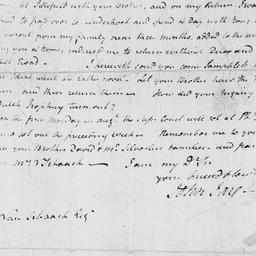 at Pittsfield with your Brother, and on my Return I was
to pass over to Kinderhook and spend a Day with You;
absent from my family near three months, added to the
you & Home, induced me to return without Delay and
Road — I herewith send you some Pamphlets
Ideas which are rather novel. Let your Brother have the
them and then return them — How did your Inquiry
Prophecy turn out?
on the first Monday in augt. the sup. Court will set at Ph
set out the preceding week — Remember me to
your Brother David & Mr. Silvester's families — and par
Mrs. V Schaack — I am my Dr. Sir
your friend &
John Jay
Van Schaack Esqr